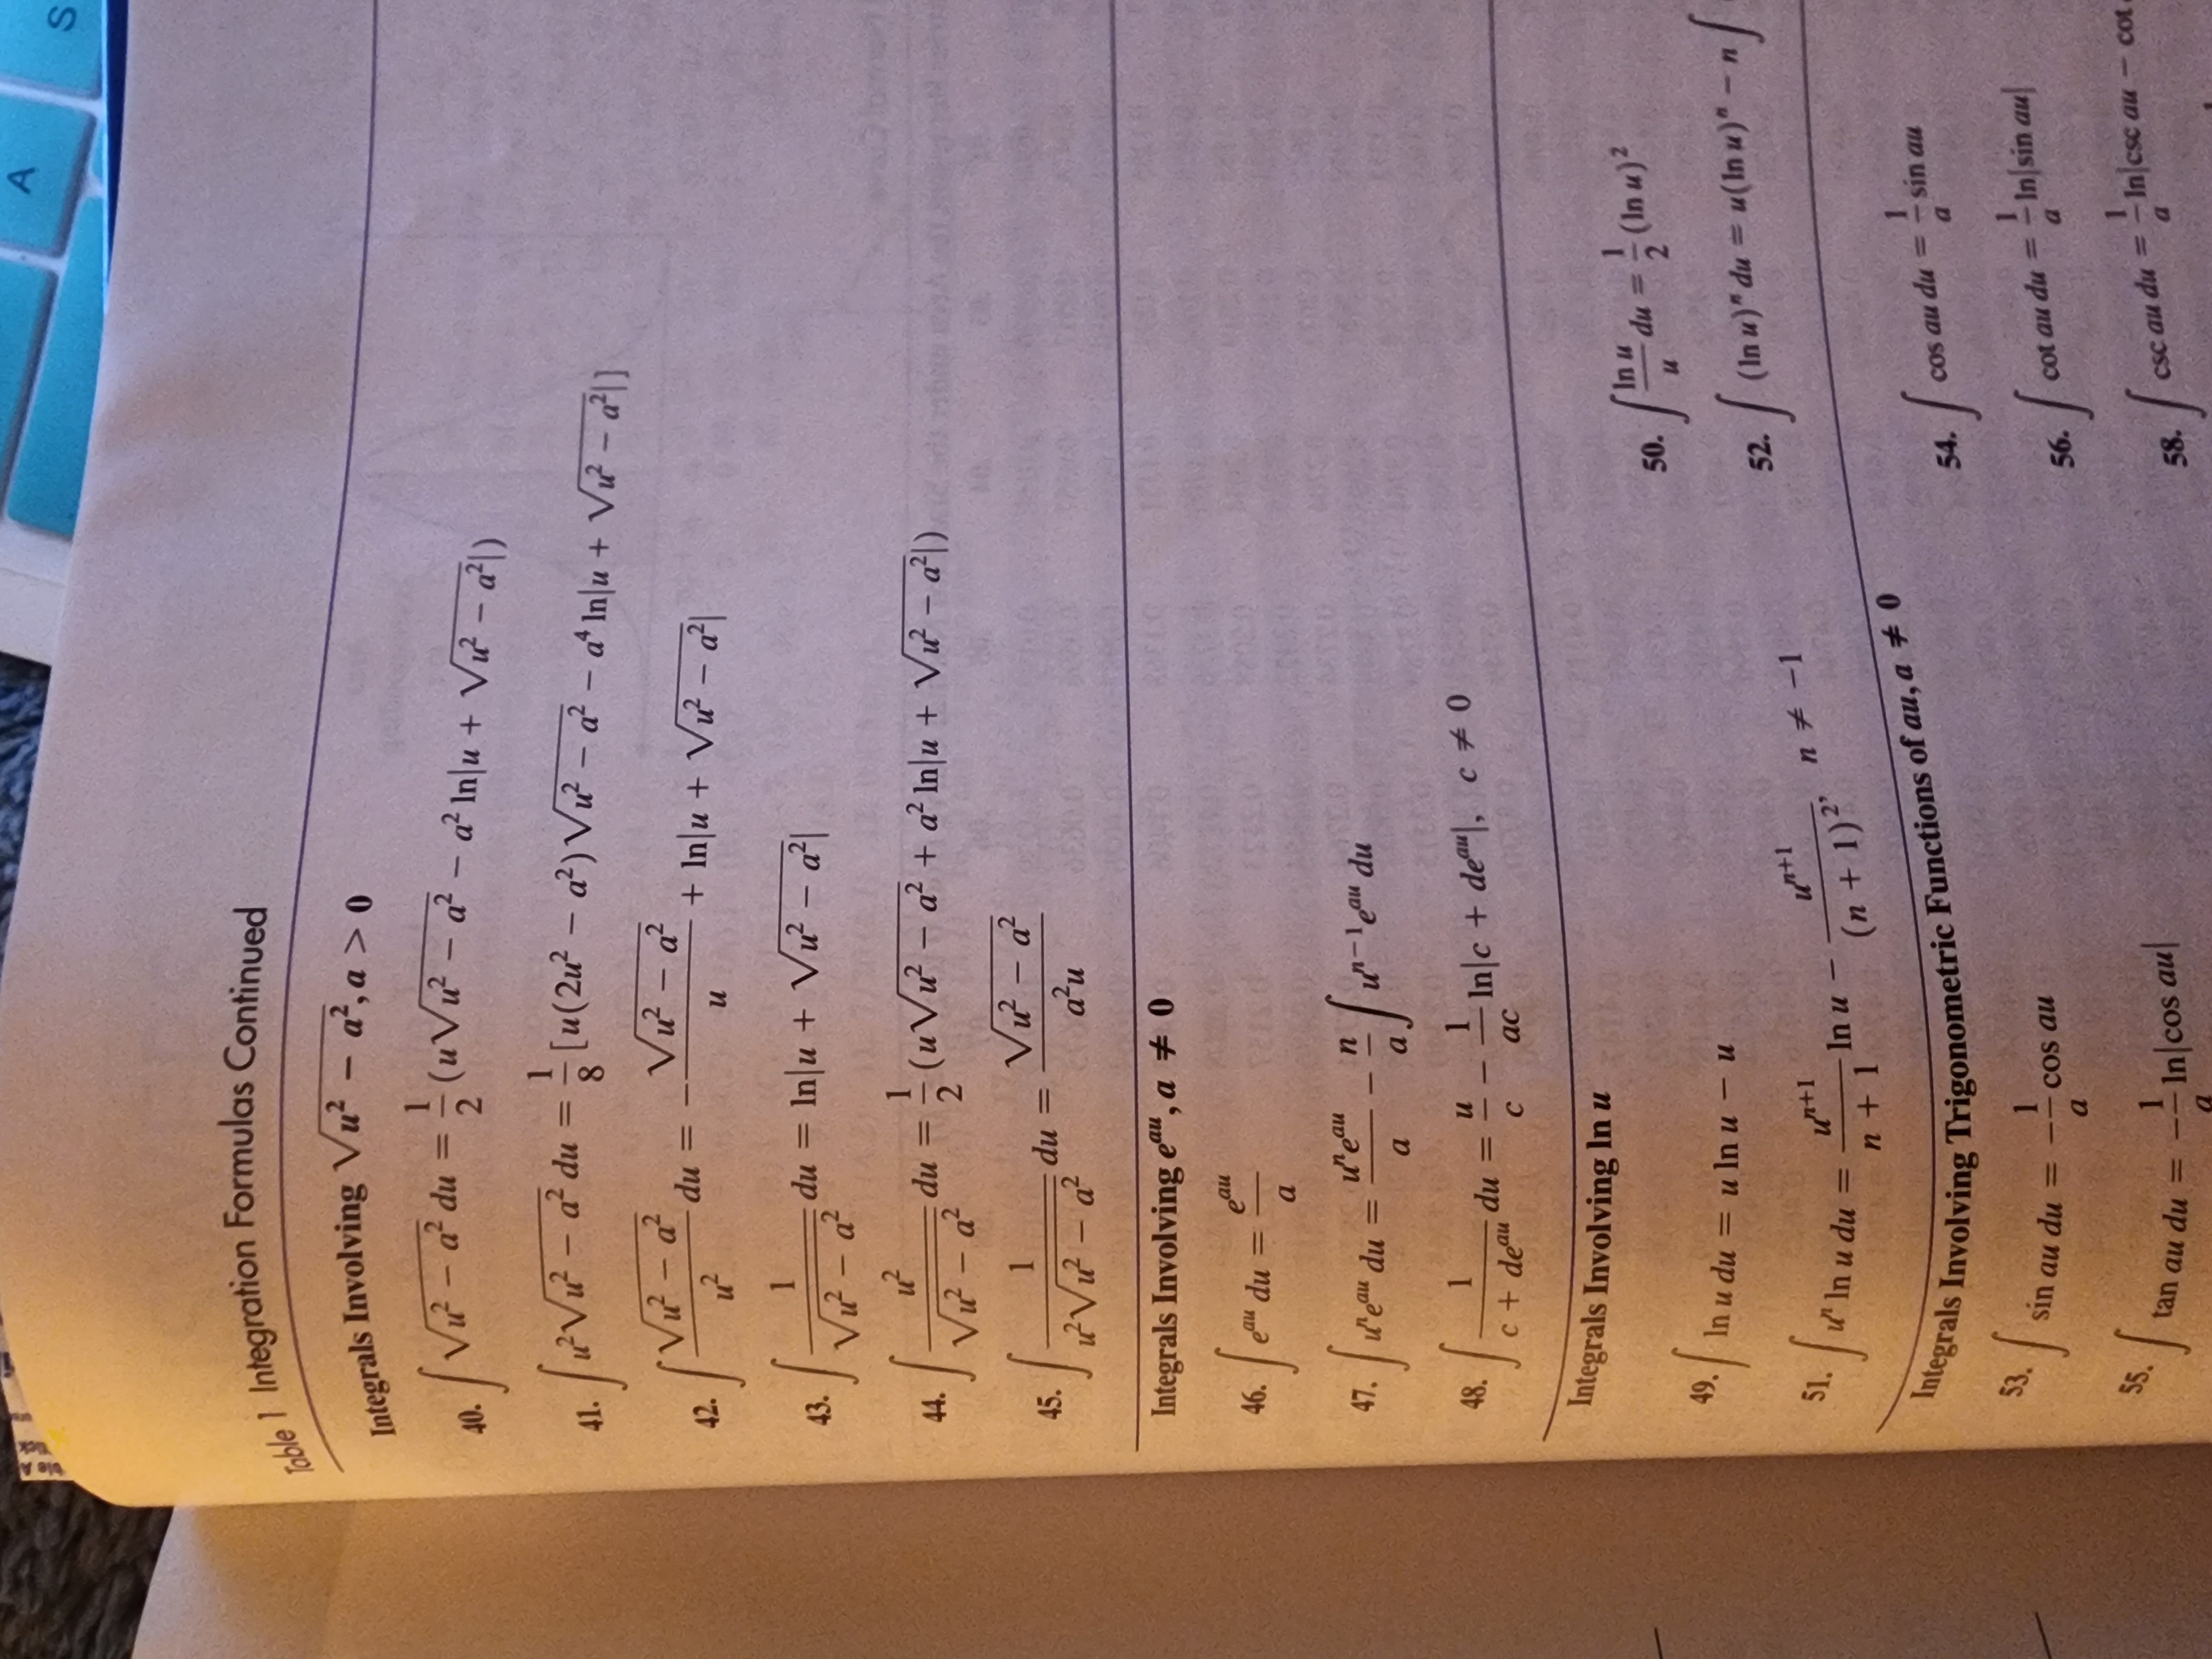 A
S
Table 1 Integration Formulas Continued
Integrals Involving √(u² − a²), a > 0
40. ∫ √(u² − a²) du = 1/2 (u√(u² − a²) − a² ln|u + √(u² − a²)|)
41. ∫ u²√(u² − a²) du = 1/8 [u(2u² − a²)√(u² − a²) − a⁴ ln|u + √(u² − a²)|]
42. ∫ √(u² − a²)/u² du = −√(u² − a²)/u + ln|u + √(u² − a²)|
43. ∫ 1/√(u² − a²) du = ln|u + √(u² − a²)|
44. ∫ u²/√(u² − a²) du = 1/2 (u√(u² − a²) + a² ln|u + √(u² − a²)|)
45. ∫ 1/(u²√(u² − a²)) du = √(u² − a²)/(a²u)
Integrals Involving e^(au), a ≠ 0
46. ∫ e^(au) du = e^(au)/a
47. ∫ uⁿe^(au) du = uⁿe^(au)/a − n/a ∫ u^(n−1)e^(au) du
48. ∫ 1/(c + de^(au)) du = u/c − 1/(ac) ln|c + de^(au)|, c ≠ 0
Integrals Involving ln u
49. ∫ ln u du = u ln u − u
50. ∫ (ln u)/u du = 1/2 (ln u)²
51. ∫ uⁿ ln u du = u^(n+1)/(n + 1) ln u − u^(n+1)/(n + 1)², n ≠ −1
52. ∫ (ln u)ⁿ du = u(ln u)ⁿ − n ∫
Integrals Involving Trigonometric Functions of au, a ≠ 0
53. ∫ sin au du = −1/a cos au
54. ∫ cos au du = 1/a sin au
55. ∫ tan au du = −1/a ln|cos au|
56. ∫ cot au du = 1/a ln|sin au|
58. ∫ csc au du = 1/a ln|csc au − cot